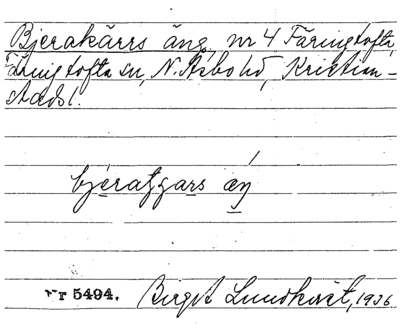 Bjerakärrs äng, nr 4 Färingtofta,
Färingtofta sn, N. Åsbo hd, Kristian-
stads l.
bjèraṣgars ǽŋ
Nr 5494. Birgit Lundkvist, 1936